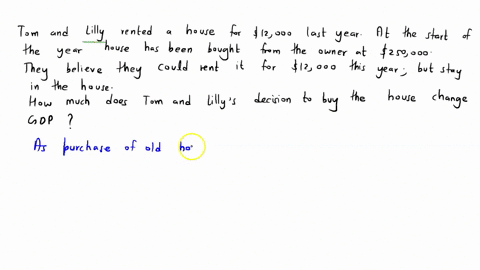 Tom and Lilly rented a house for $12,000 last year. At the start of
the year house has been bought from the owner at $250,000.
They believe they could rent it for $12,000 this year, but stay
in the house.
How much does Tom and Lilly's decision to buy the house change
GDP ?
As purchase of old ho